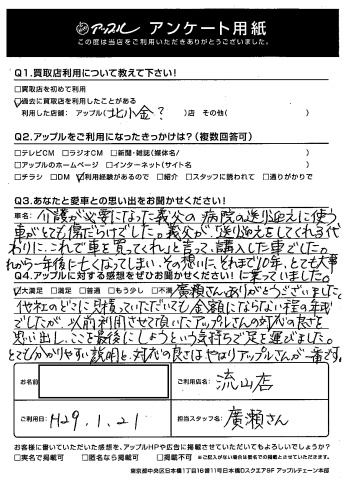 アップル アンケート用紙
この度は当店をご利用いただきありがとうございました。
Q1.買取店利用について教えて下さい!
□買取店を初めて利用
☑過去に買取店を利用したことがある
利用した店舗: アップル( 北小金? )店 その他( )
Q2.アップルをご利用になったきっかけは?(複数回答可)
□テレビCM □ラジオCM □新聞・雑誌(媒体名/ )
□アップルのホームページ □インターネット(サイト名 )
□チラシ □DM ☑利用経験があるので □紹介 □スタッフに誘われて □通りがかりで
Q3.あなたと愛車との思い出をお聞かせください!
車名: 介護が必要になった義父の病院の送り迎えに使う
車がとても傷だらけでした。義父が、「送り迎えをしてくれる代
わりに、これで車を買ってくれ」と言って、購入した車でした。
それから一年後に亡くなってしまい、その想いに、それまで10年、とても大事
に乗っていました。
Q4.アップルに対する感想をぜひお聞かせください!
☑大満足 □満足 □普通 □もう少し □不満 廣瀬さんありがとうございました。
他社のどこに見積っていただいても金額にならない程の年式
でしたが、以前利用させて頂いたアップルさんの対応の良さを
思い出し、ここを最後にしようという気持ちで足を運びました。
とても分かりやすい説明と、対応の良さはやはりアップルさんが一番です。
お名前
ご利用店名: 流山店
ご利用日: H29.1.21
担当スタッフ名: 廣瀬さん
お客様に書いていただいた感想を、アップルHPや広告に掲載させていただいてもよろしいでしょうか?
□実名で掲載可 □匿名なら掲載可 □不可 ※ご記入がない場合は匿名での掲載とさせていただきます。
東京都中央区日本橋1丁目16番11号日本橋Dスクエア8F アップルチェーン本部